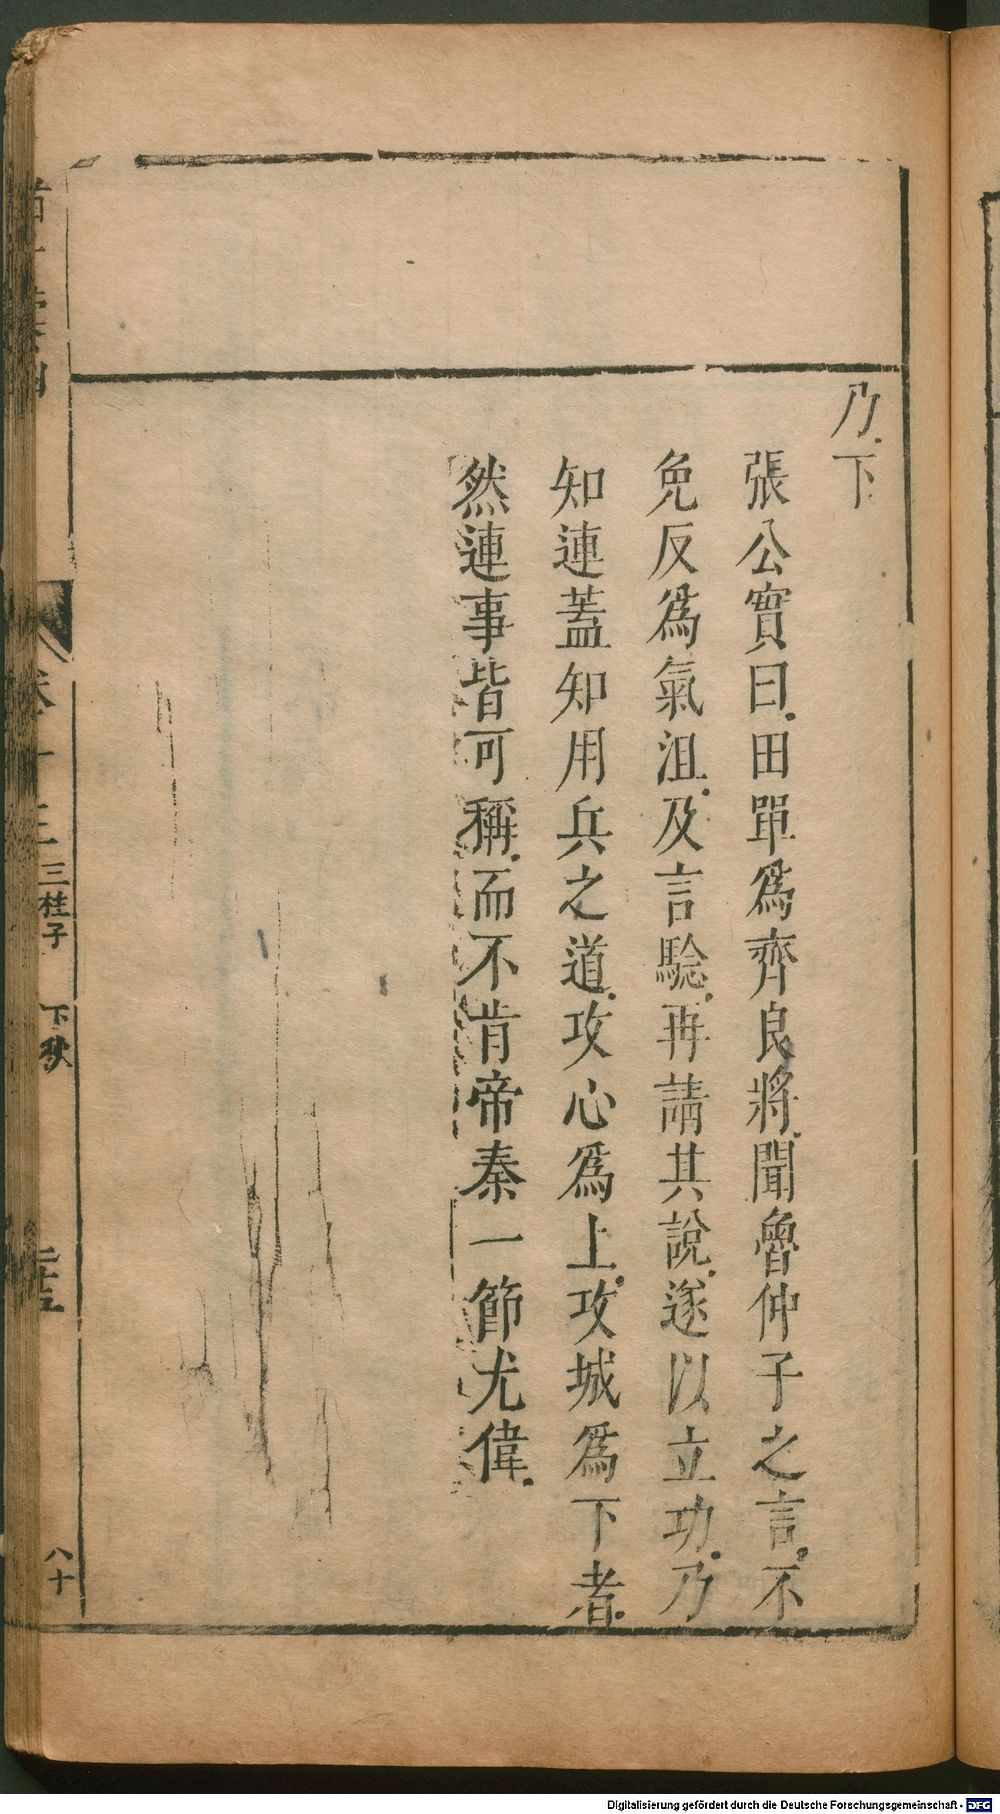 乃下
張公實曰田單爲齊良將聞魯仲子之言不
免反爲氣沮及言驗再請其說遂以立功乃
知連蓋知用兵之道攻心爲上攻城爲下者
然連事皆可稱而不肯帝秦一節尤偉
卷十三
三桂子
下秋
八十
Digitalisierung gefördert durch die Deutsche Forschungsgemeinschaft - DFG